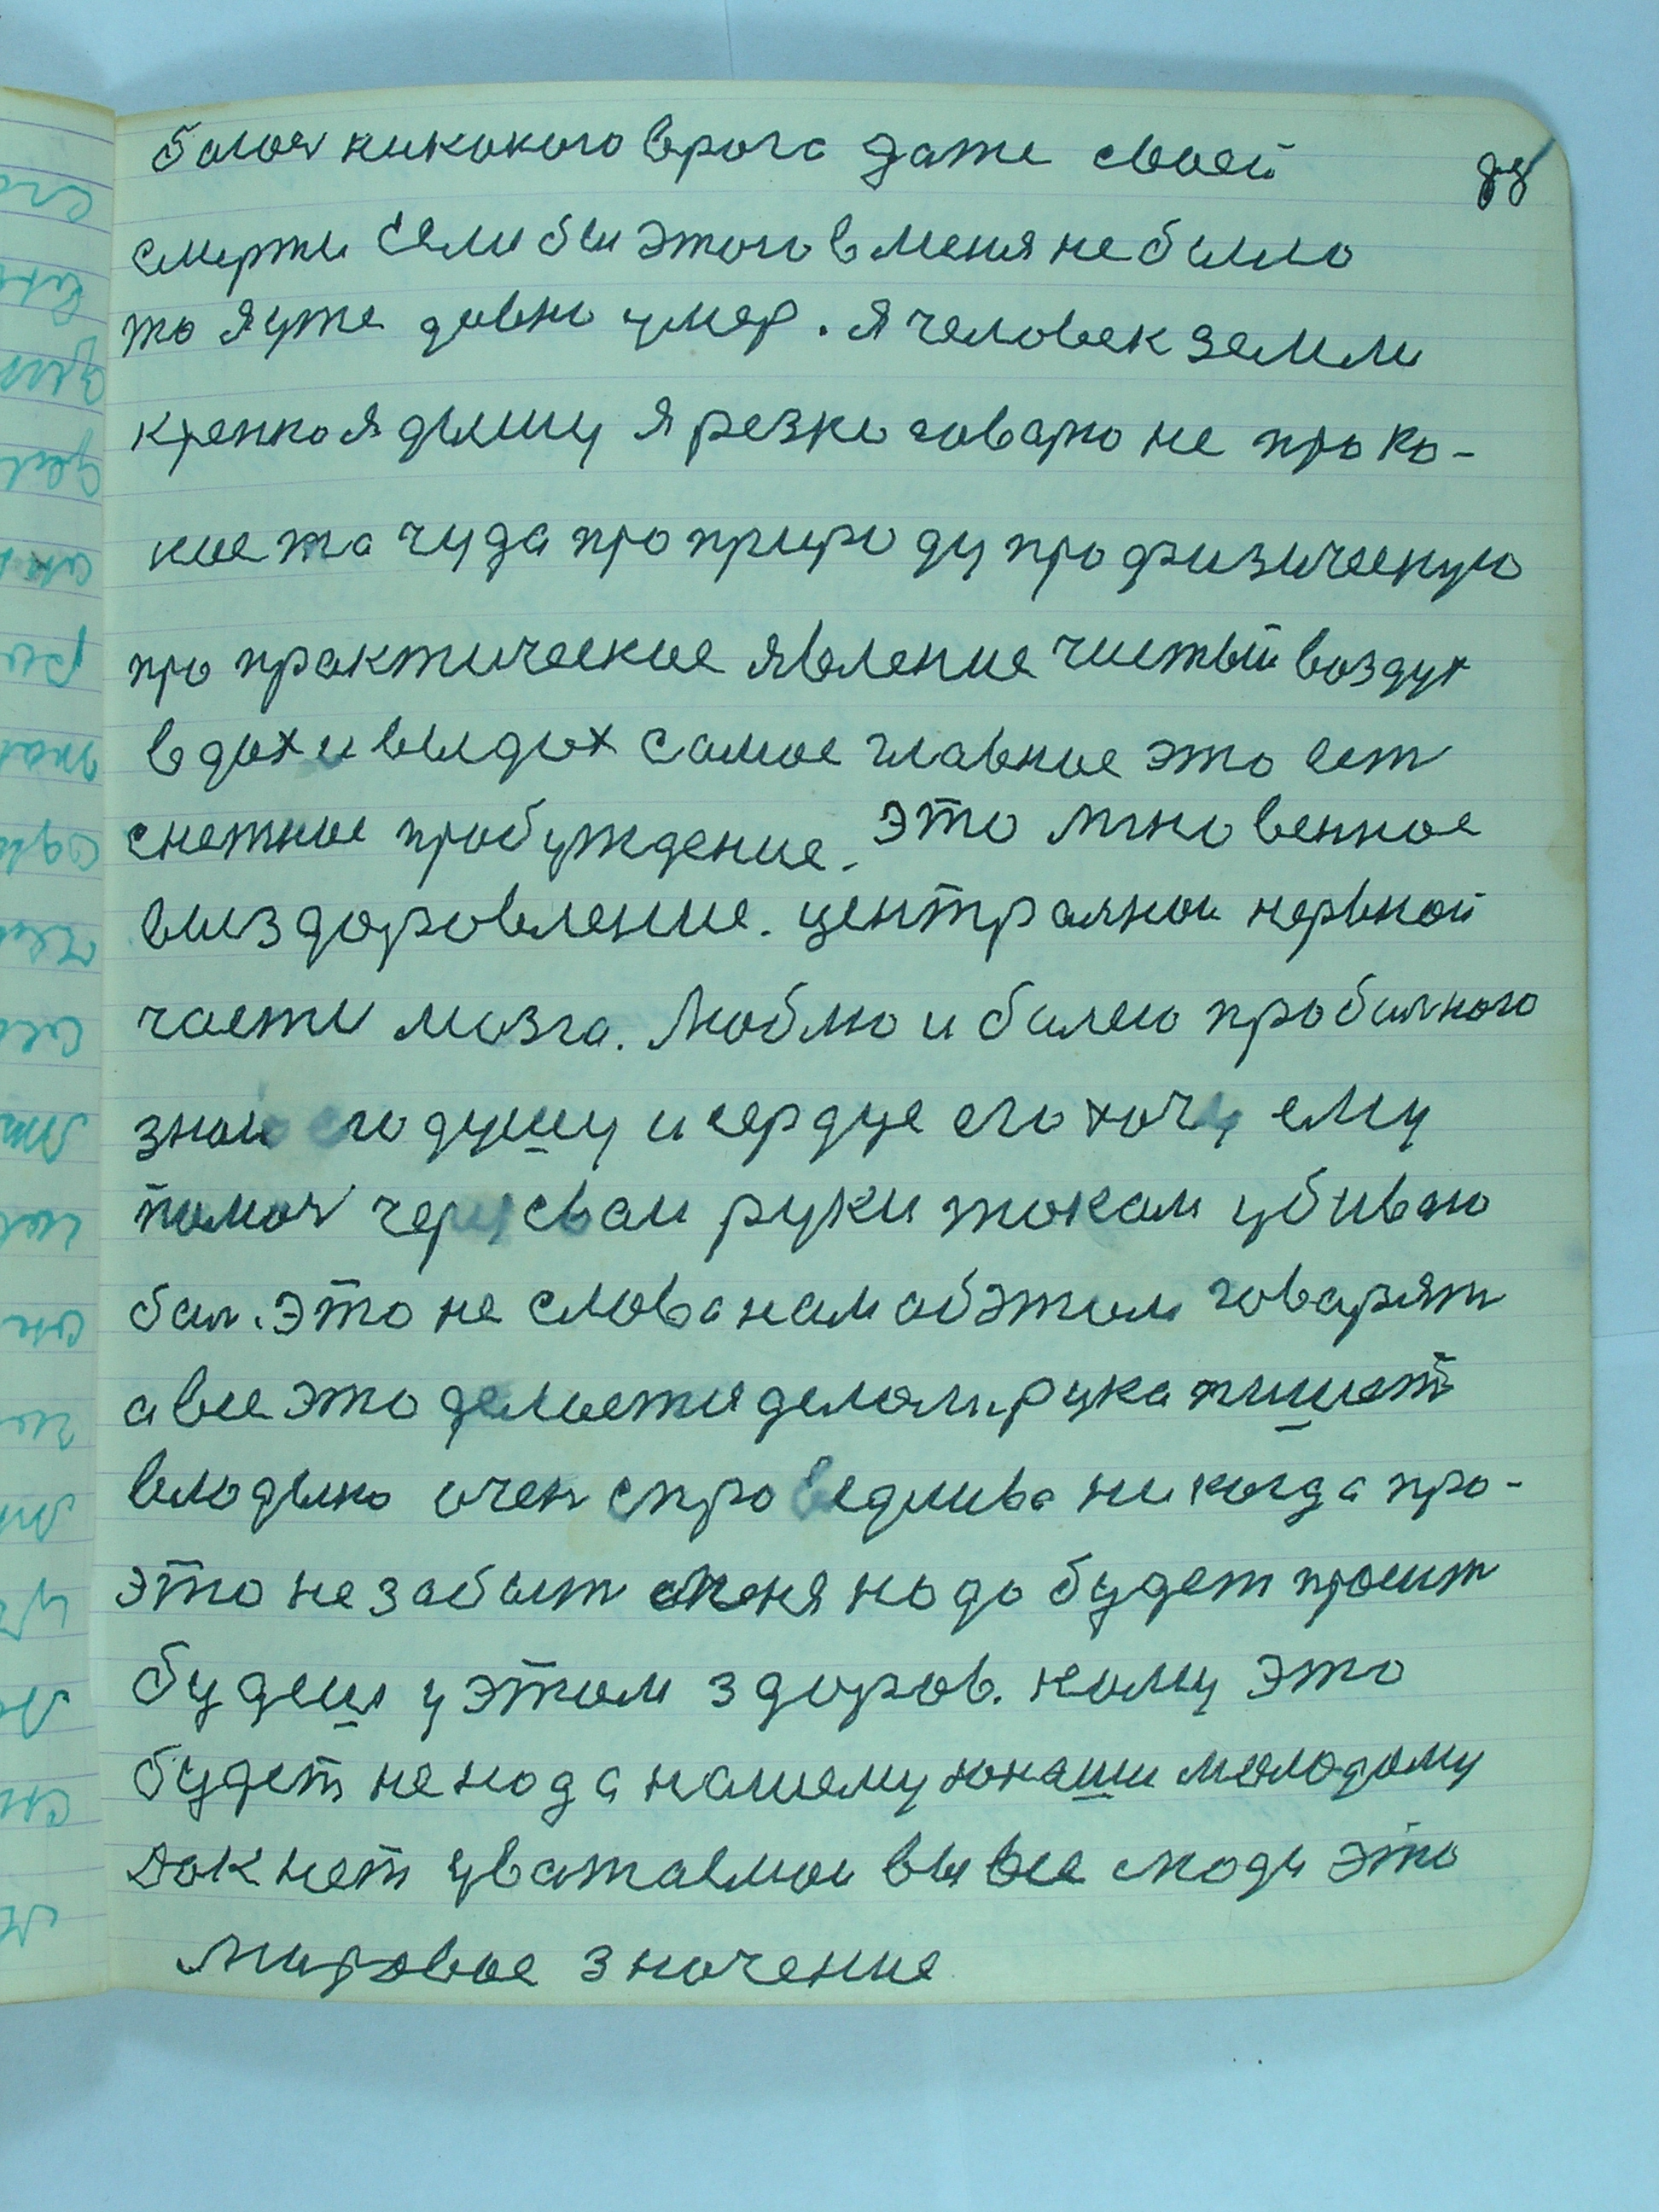 88
боюся никокого врага даже своей
смерти Если бы этого в меня не было
то я уже давно умер. Я человек земли
крепко я дышу я резко говарю не про ко-
кое то чуда про природу про физическую
про практическое явление чистый воздух
вдох и выдох самое главное это ест
снежное пробуждение. Это мгновенное
выздоровление. централной нервной
части мозга. Люблю и болею про болного
знаю его душу и сердце его хочу ему
помоч через сваи руки током убиваю
бол. Это не слова нам об этом говарят
а все это делается делом. рука пишет
владыко очен справедлива никогда про-
это не забыт меня надо будет просит
будеш у этом здоров. кому это
будет не нада нашему юнаши молодому
Дак нет уважаемои вы все люди это
мировое значение